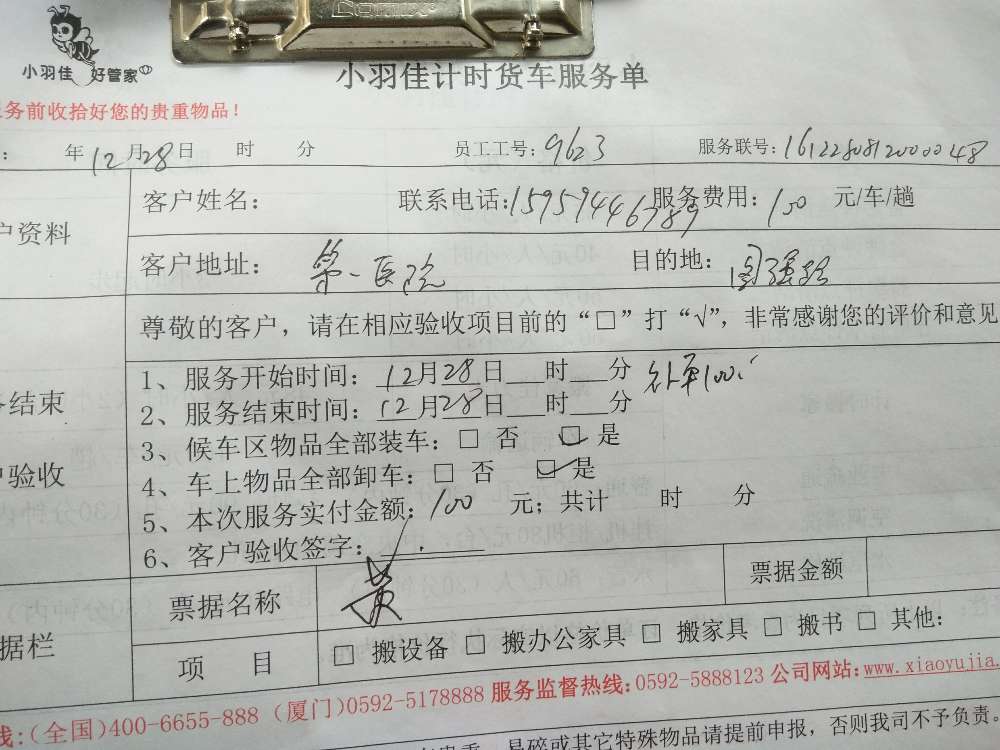 Comix
小羽佳 好管家
小羽佳计时货车服务单
务前收拾好您的贵重物品！
： 年12月28日 时 分 员工工号：9623 服务联号：1612280812000048
户资料 客户姓名： 联系电话：15959446789 服务费用：100 元/车/趟
客户地址：第一医院 目的地：
尊敬的客户，请在相应验收项目前的“□”打“√”，非常感谢您的评价和意见
结束
户验收
1、服务开始时间：12月28日___时___分
2、服务结束时间：12月28日___时___分
3、候车区物品全部装车：□ 否 ☑ 是
4、车上物品全部卸车：□ 否 ☑ 是
5、本次服务实付金额：100 元；共计 时 分
6、客户验收签字：
黄
据栏 票据名称 票据金额
项 目 □ 搬设备 □ 搬办公家具 □ 搬家具 □ 搬书 □ 其他：
线：(全国)400-6655-888 (厦门)0592-5178888 服务监督热线：0592-5888123 公司网站：www.xiaoyujia.
易碎或其它特殊物品请提前申报，否则我司不予负责。